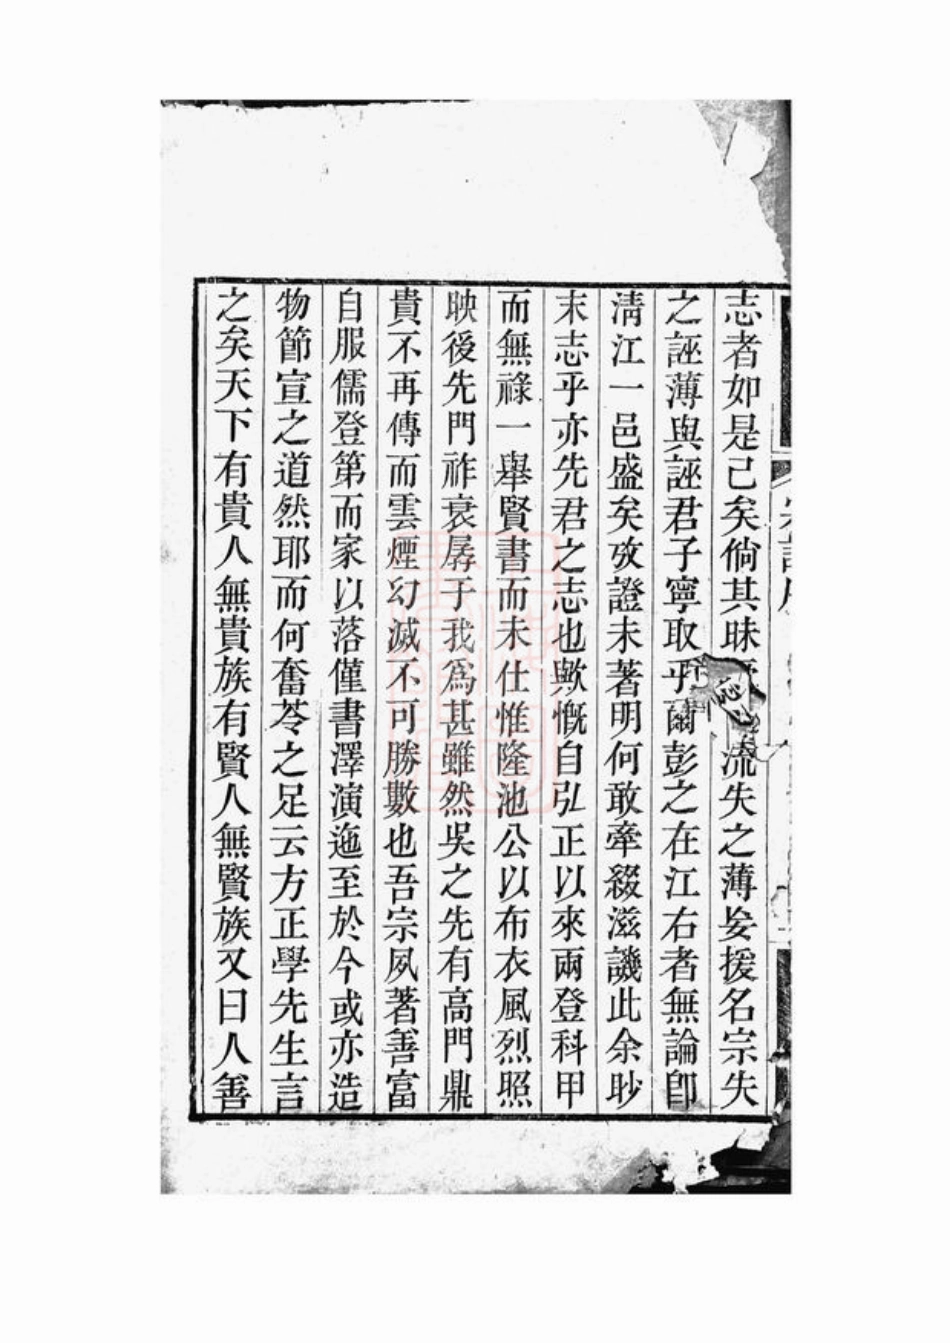 志者如是己矣倘其昧流失之薄妄援名宗失
之誣薄與誣君子寧取乎爾彭之在江右者無論卽
淸江一邑盛矣攷證未著明何敢牽綴滋譏此余眇
末志乎亦先君之志也歟慨自弘正以來兩登科甲
而無祿一舉賢書而未仕惟隆池公以布衣風烈照
映後先門祚衰孱于我爲甚雖然吳之先有高門鼎
貴不再傳而雲煙幻滅不可勝數也吾宗夙著善富
自服儒登第而家以落僅書澤演迤至於今或亦造
物節宣之道然耶而何奮苓之足云方正學先生言
之矣天下有貴人無貴族有賢人無賢族又曰人善